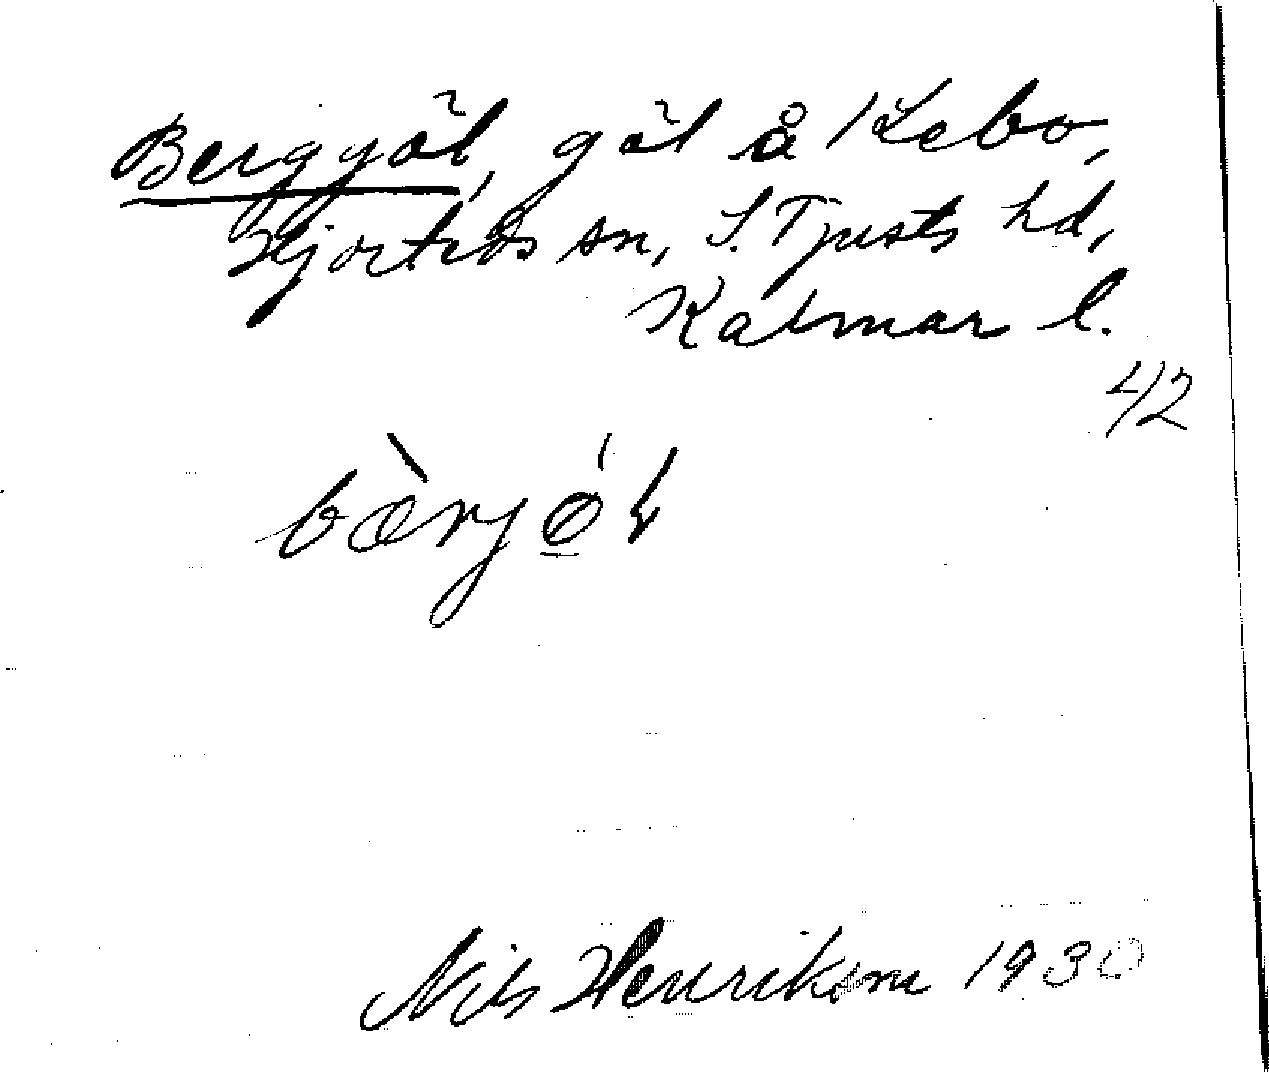 Berggöl, göl å Klebo,
Hjorteds sn, S. Tjusts hd,
Kalmar l.
42
Nils Henrikson 1930